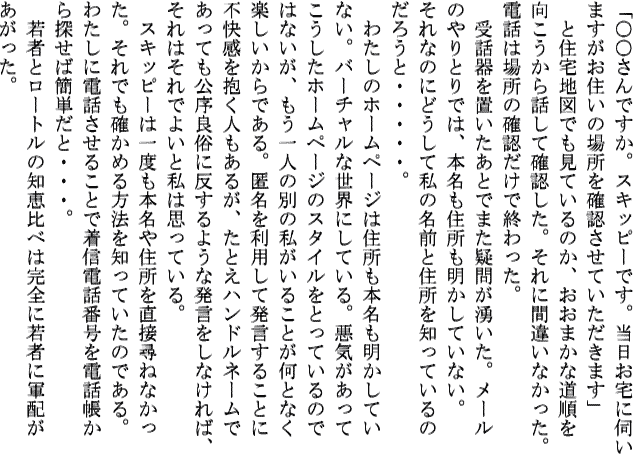 「○○さんですか。スキッピーです。当日お宅に伺い
ますがお住いの場所を確認させていただきます」
　と住宅地図でも見ているのか、おおまかな道順を
向こうから話して確認した。それに間違いなかった。
電話は場所の確認だけで終わった。
　受話器を置いたあとでまた疑問が湧いた。メール
のやりとりでは、本名も住所も明かしていない。
それなのにどうして私の名前と住所を知っているの
だろうと・・・・・。
　わたしのホームページは住所も本名も明かしてい
ない。バーチャルな世界にしている。悪気があって
こうしたホームページのスタイルをとっているので
はないが、もう一人の別の私がいることが何となく
楽しいからである。匿名を利用して発言することに
不快感を抱く人もあるが、たとえハンドルネームで
あっても公序良俗に反するような発言をしなければ、
それはそれでよいと私は思っている。
　スキッピーは一度も本名や住所を直接尋ねなかっ
た。それでも確かめる方法を知っていたのである。
わたしに電話させることで着信電話番号を電話帳か
ら探せば簡単だと・・・。
　若者とロートルの知恵比べは完全に若者に軍配が
あがった。